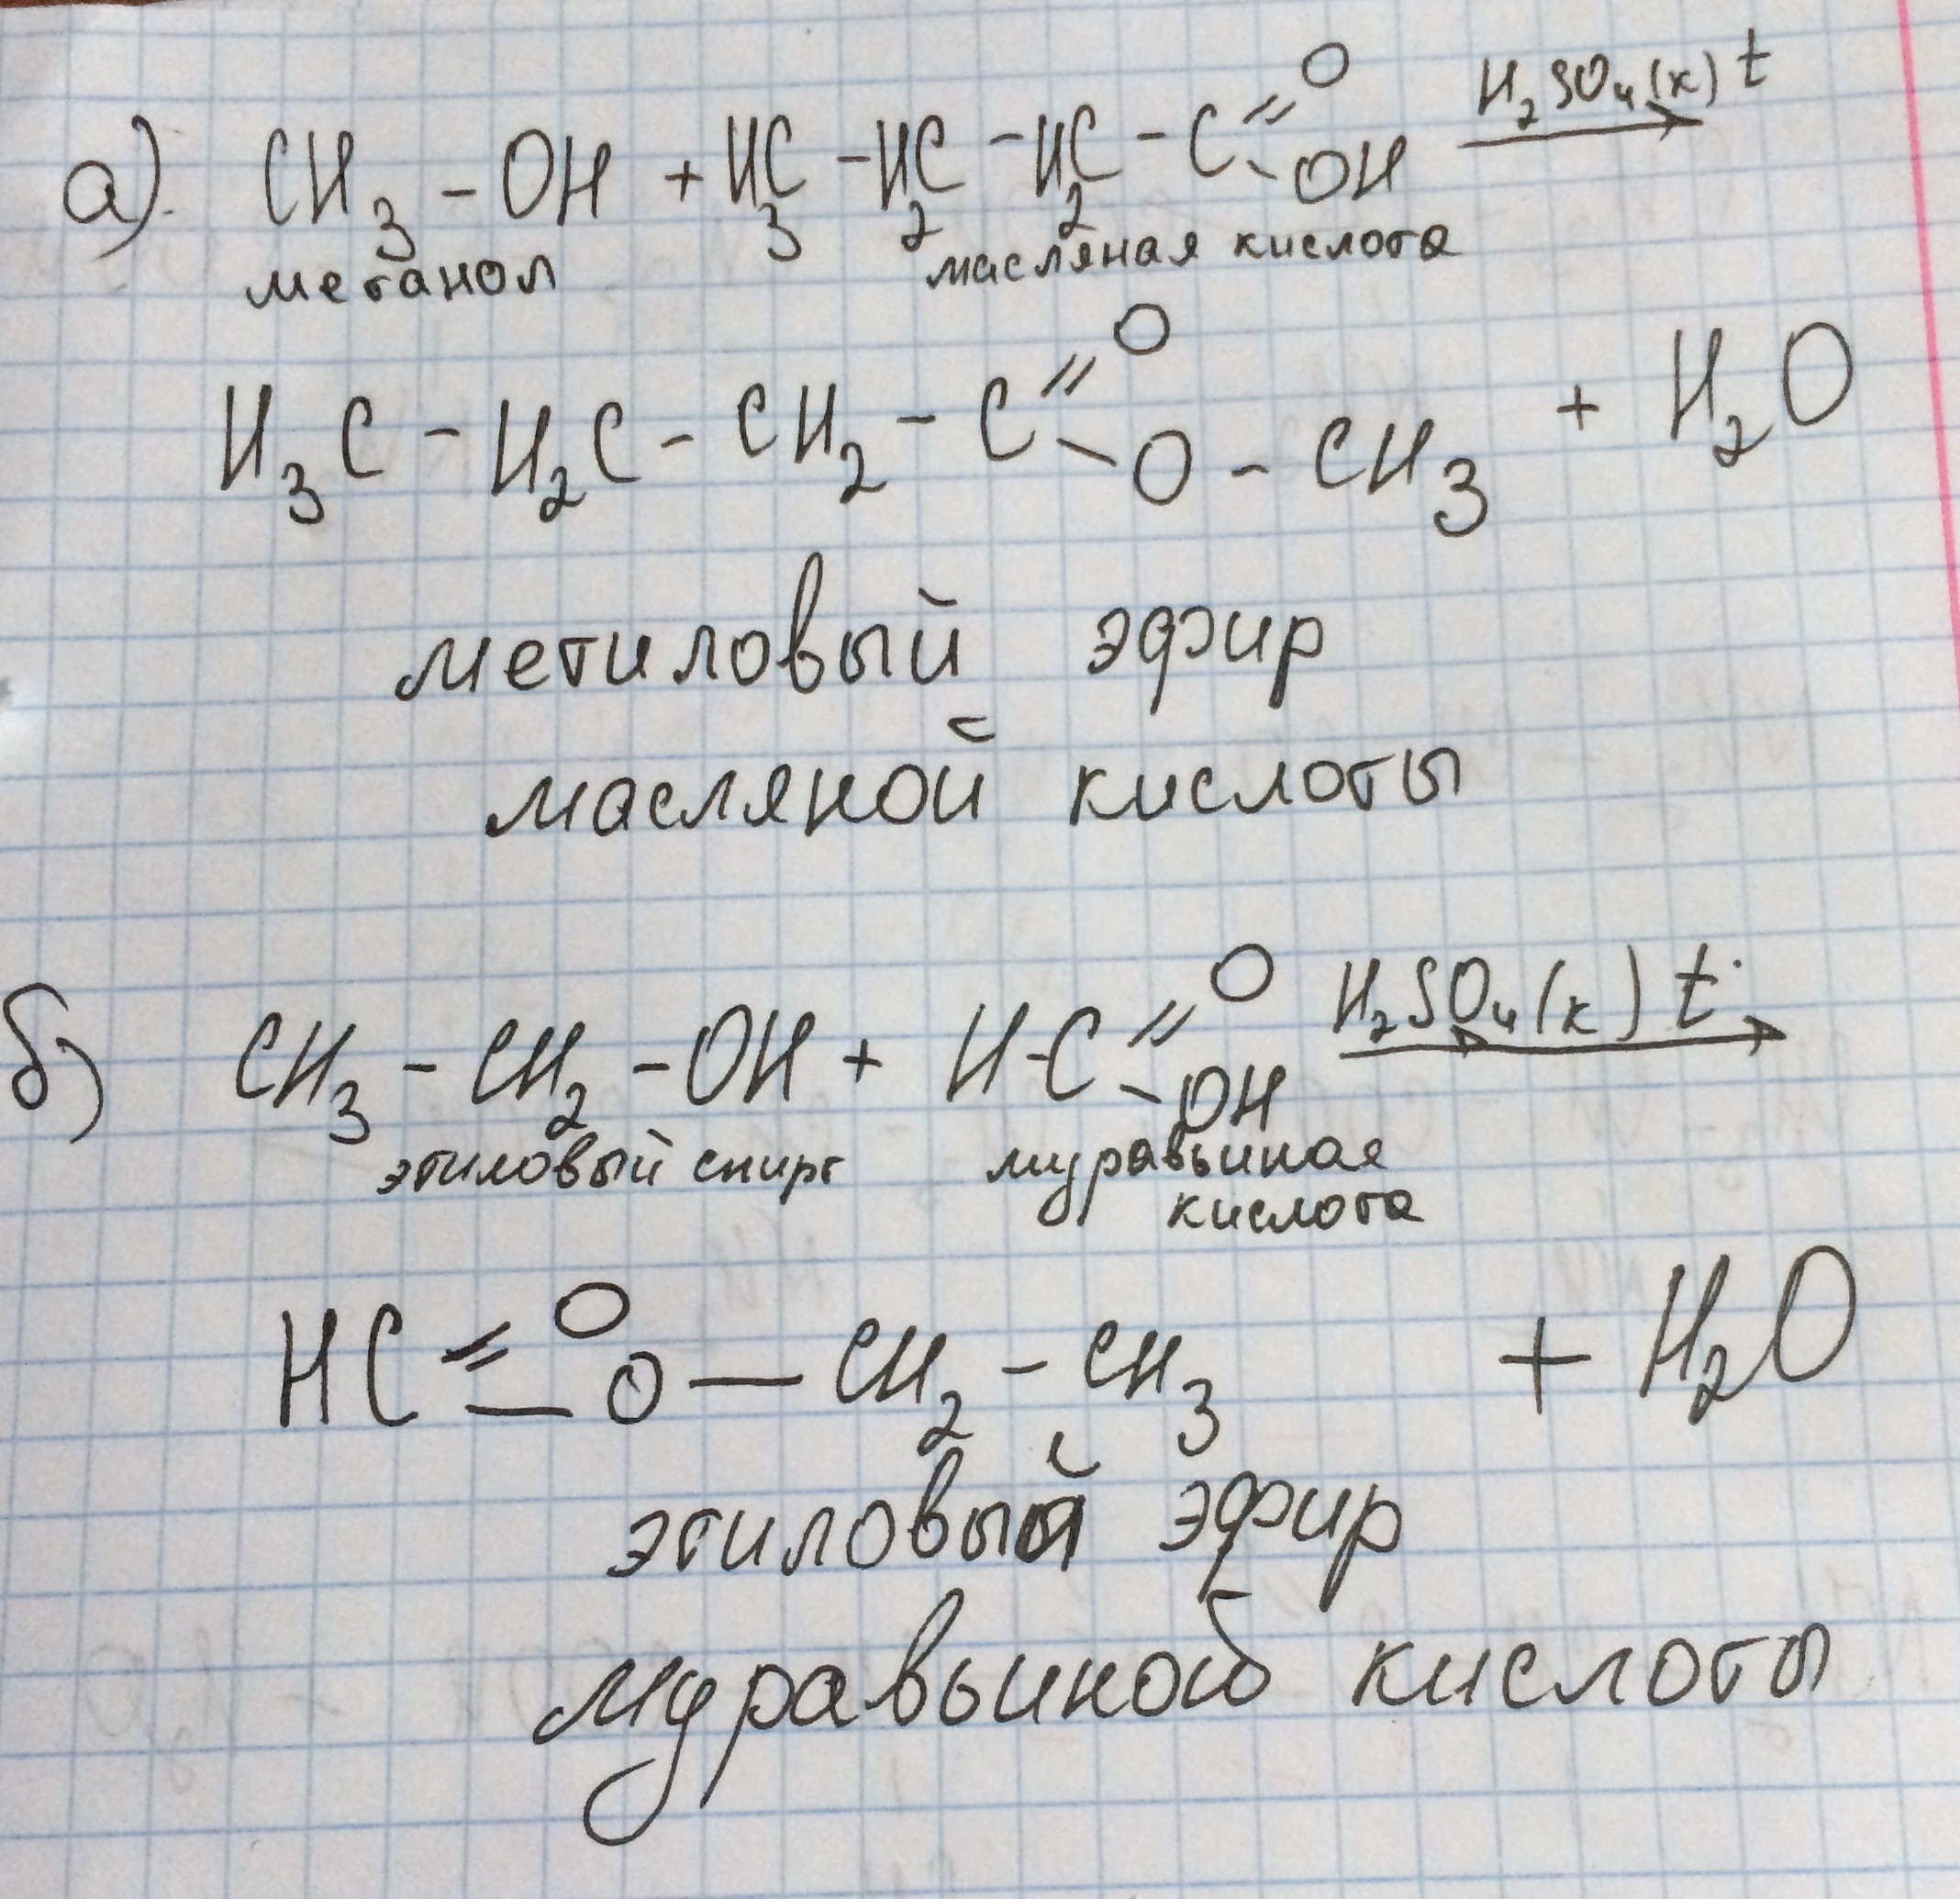 а) CH₃ - OH + H₃C - H₂C - H₂C - C =O -OH H₂SO₄(к) t →
метанол масляная кислота
H₃C - H₂C - CH₂ - C =O -O - CH₃ + H₂O
метиловый эфир
масляной кислоты
б) CH₃ - CH₂ - OH + H-C =O -OH H₂SO₄(к) t →
этиловый спирт муравьиная
кислота
HC =O -O - CH₂ - CH₃ + H₂O
этиловый эфир
муравьиной кислоты